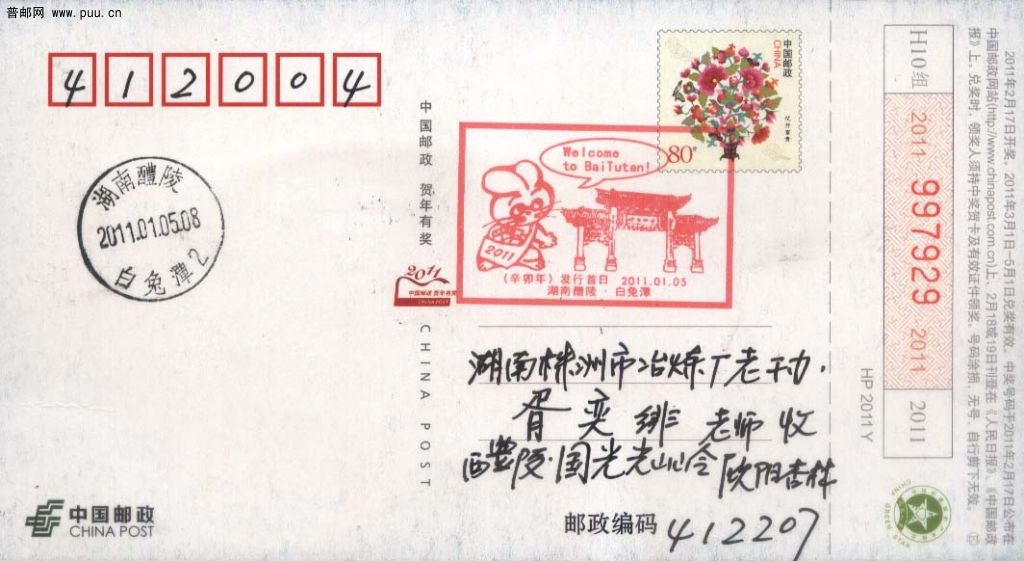 普邮网 www.puu.cn
412004
湖南醴陵
2011.01.05.08
白兔潭 2
中国邮政 贺年有奖
2011
中国邮政 贺年有奖
CHINA POST
CHINA POST
中国邮政
CHINA
花开富贵
80分
Welcome
to BaiTutan!
2011
(辛卯年) 发行首日 2011.01.05
湖南醴陵·白兔潭
湖南株洲市冶炼厂老干办.
胥奕绯 老师 收
醴陵·国光 欧阳杏林
邮政编码 412207
中国邮政
CHINA POST
H10组
2011 997929 2011
2011
HP 2011Y
2011年2月17日开奖。2011年3月1日-5月1日兑奖有效。中奖号码于2011年2月17日公布在
中国邮政网站(http://www.chinapost.com.cn)上、2月18或19日刊登在《人民日报》、《中国邮政
报》上。兑奖时，领奖人须持中奖贺卡及有效证件领奖。号码涂损，无号，自行剪下无效。